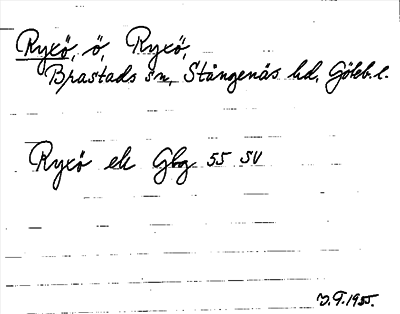 Ryxö, ö, Ryxö,
Brastads sn, Stångenäs hd, Göteb. l.
Ryxö ek Gbg 55 SV
J.F. 1955.